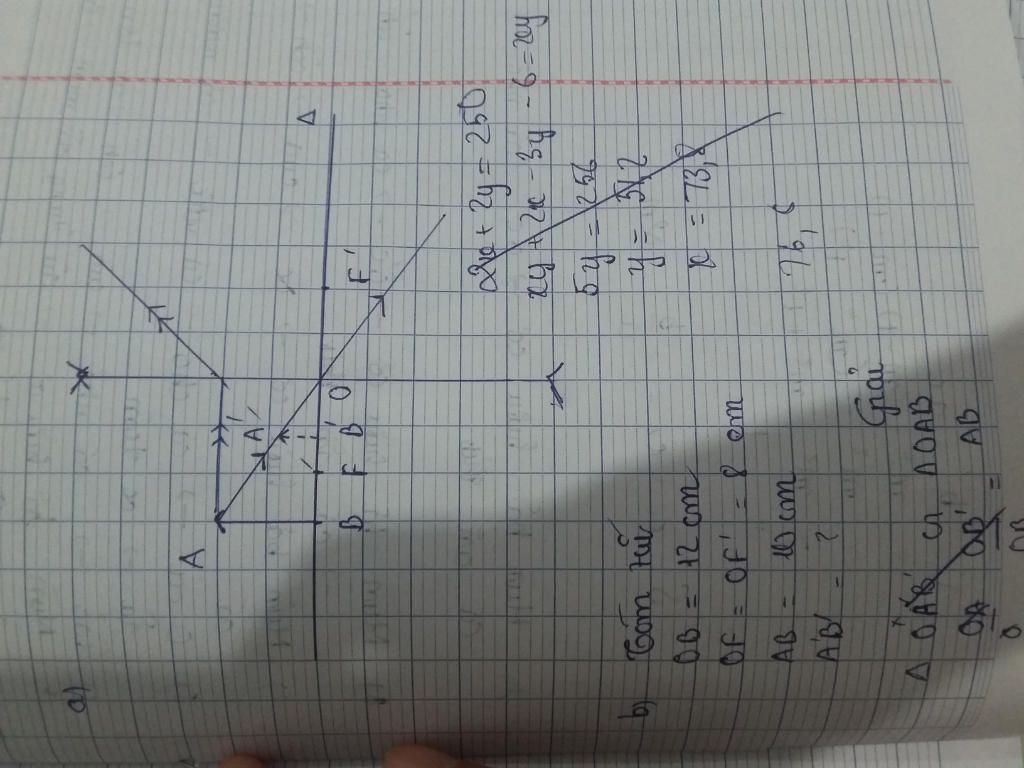 a)
A
A'
Δ
B F B' O F'
2x + 2y = 250
xy + 2x - 3y - 6 = xy
5y = 256
y = 51,2
x = 73,8
b) Tóm tắt
OB = 12 cm
OF = OF' = 8 cm
AB = 10 cm
A'B' = ?
Giải
Δ OA'B' ∽ Δ OAB
OA OB' = AB
OB